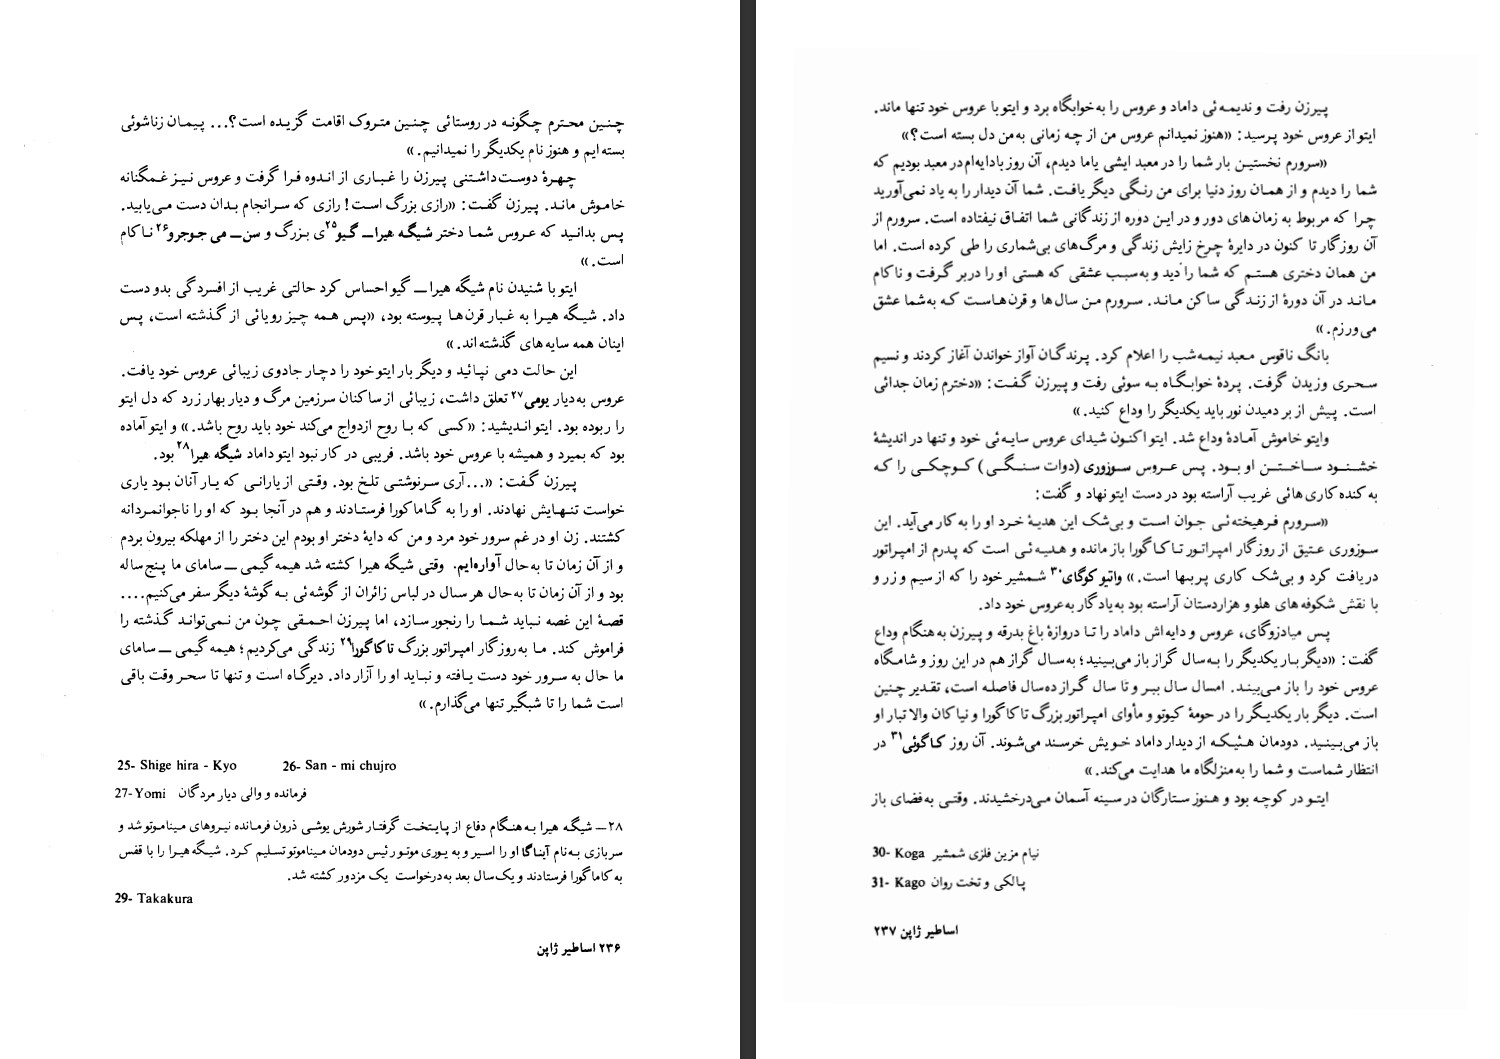 چنین محترم چگونه در روستائی چنین متروک اقامت گزیده است؟... پیمان زناشوئی
بسته ایم و هنوز نام یکدیگر را نمیدانیم.»
چهرهٔ دوست‌داشتنی پیرزن را غباری از اندوه فرا گرفت و عروس نیز غمگنانه
خاموش ماند. پیرزن گفت: «رازی بزرگ است! رازی که سرانجام بدان دست می‌یابید.
پس بدانید که عروس شما دختر شیگه هیرا— گیو۲۵ی بزرگ و سن— می جوجرو۲۶ ناکام
است.»
ایتو با شنیدن نام شیگه هیرا— گیو احساس کرد حالتی غریب از افسردگی بدو دست
داد. شیگه هیرا به غبار قرن‌ها پیوسته بود، «پس همه چیز رویائی از گذشته است، پس
اینان همه سایه های گذشته‌اند.»
این حالت دمی نپائید و دیگر بار ایتو خود را دچار جادوی زیبائی عروس خود یافت.
عروس به‌دیار یومی۲۷ تعلق داشت، زیبائی از ساکنان سرزمین مرگ و دیار بهار زرد که دل ایتو
را ربوده بود. ایتو اندیشید: «کسی که با روح ازدواج می‌کند خود باید روح باشد.» و ایتو آماده
بود که بمیرد و همیشه با عروس خود باشد. فریبی در کار نبود ایتو داماد شیگه هیرا۲۸ بود.
پیرزن گفت: «...آری سرنوشتی تلخ بود. وقتی از یارانی که یار آنان بود یاری
خواست تنهایش نهادند. او را به گاماکورا فرستادند و هم در آنجا بود که او را ناجوانمردانه
کشتند. زن او در غم سرور خود مرد و من که دایهٔ دختر او بودم این دختر را از مهلکه بیرون بردم
و از آن زمان تا به‌حال آواره‌ایم. وقتی شیگه هیرا کشته شد هیمه گیمی— سامای ما پنج‌ساله
بود و از آن زمان تا به‌حال هر سال در لباس زائران از گوشه‌ئی به گوشهٔ دیگر سفر می‌کنیم....
قصهٔ این غصه نباید شما را رنجور سازد، اما پیرزن احمقی چون من نمی‌تواند گذشته را
فراموش کند. ما به‌روزگار امپراتور بزرگ تاکاگورا۲۹ زندگی می‌کردیم؛ هیمه گیمی— سامای
ما حال به سرور خود دست یافته و نباید او را آزار داد. دیرگاه است و تنها تا سحر وقت باقی
است شما را تا شبگیر تنها می‌گذارم.»
25- Shige hira - Kyo 26- San - mi chujro
27- Yomi فرمانده و والی دیار مردگان
۲۸— شیگه هیرا به هنگام دفاع از پایتخت گرفتار شورش یوشی ذرون فرمانده نیروهای میناموتو شد و
سربازی به‌نام آیناگا او را اسیر و به یوری موتو رئیس دودمان میناموتو تسلیم کرد. شیگه هیرا را با قفس
به کاماگورا فرستادند و یک سال بعد به‌درخواست یک مزدور کشته شد.
29- Takakura
۲۳۶ اساطیر ژاپن
پیرزن رفت و ندیمه ئی داماد و عروس را به‌خوابگاه برد و ایتو با عروس خود تنها ماند.
ایتو از عروس خود پرسید: «هنوز نمیدانم عروس من از چه زمانی به‌من دل بسته است؟»
«سرورم نخستین بار شما را در معبد ایشی یاما دیدم، آن روز با دایه‌ام در معبد بودیم که
شما را دیدم و از همان روز دنیا برای من رنگی دیگر یافت. شما آن دیدار را به یاد نمی‌آورید
چرا که مربوط به زمان‌های دور و در این دوره از زندگانی شما اتفاق نیفتاده است. سرورم از
آن روزگار تا کنون در دایرهٔ چرخ زایش زندگی و مرگ‌های بی‌شماری را طی کرده است. اما
من همان دختری هستم که شما را دید و به‌سبب عشقی که هستی او را دربر گرفت و ناکام
ماند در آن دورهٔ از زندگی ساکن ماند. سرورم من سال ها و قرن‌هاست که به‌شما عشق
می‌ورزم.»
بانگ ناقوس معبد نیمه‌شب را اعلام کرد. پرندگان آواز خواندن آغاز کردند و نسیم
سحری وزیدن گرفت. پردهٔ خوابگاه به سوئی رفت و پیرزن گفت: «دخترم زمان جدائی
است. پیش از بر دمیدن نور باید یکدیگر را وداع کنید.»
وایتو خاموش آمادهٔ وداع شد. ایتو اکنون شیدای عروس سایه‌ئی خود و تنها در اندیشهٔ
خشنود ساختن او بود. پس عروس سوزوری (دوات سنگی) کوچکی را که
به کنده کاری هائی غریب آراسته بود در دست ایتو نهاد و گفت:
«سرورم فرهیخته ئی جوان است و بی‌شک این هدیهٔ خرد او را به کار می‌آید. این
سوزوری عتیق از روزگار امپراتور تاکاگورا باز مانده و هدیه ئی است که پدرم از امپراتور
دریافت کرد و بی‌شک کاری پربها است.» واتیو کوگای۳۰ شمشیر خود را که از سیم و زر و
با نقش شکوفه های هلو و هزاردستان آراسته بود به‌یادگار به‌عروس خود داد.
پس میادزوگای، عروس و دایه‌اش داماد را تا دروازهٔ باغ بدرقه و پیرزن به هنگام وداع
گفت: «دیگر بار یکدیگر را به سال گراز باز می‌بینید؛ به‌سال گراز هم در این روز و شامگاه
عروس خود را باز می‌بیند. امسال سال ببر و تا سال گراز ده‌سال فاصله است، تقدیر چنین
است. دیگر بار یکدیگر را در حومهٔ کیوتو و مأوای امپراتور بزرگ تاکاگورا و نیاکان والا تبار او
باز می‌بینید. دودمان هئیکه از دیدار داماد خویش خرسند می‌شوند. آن روز کاگوئی۳۱ در
انتظار شماست و شما را به‌منزلگاه ما هدایت می‌کند.»
ایتو در کوچه بود و هنوز ستارگان در سینه آسمان می‌درخشیدند. وقتی به‌فضای باز
30- Koga نیام مزین فلزی شمشیر
31- Kago پالکی و تخت روان
اساطیر ژاپن ۲۳۷